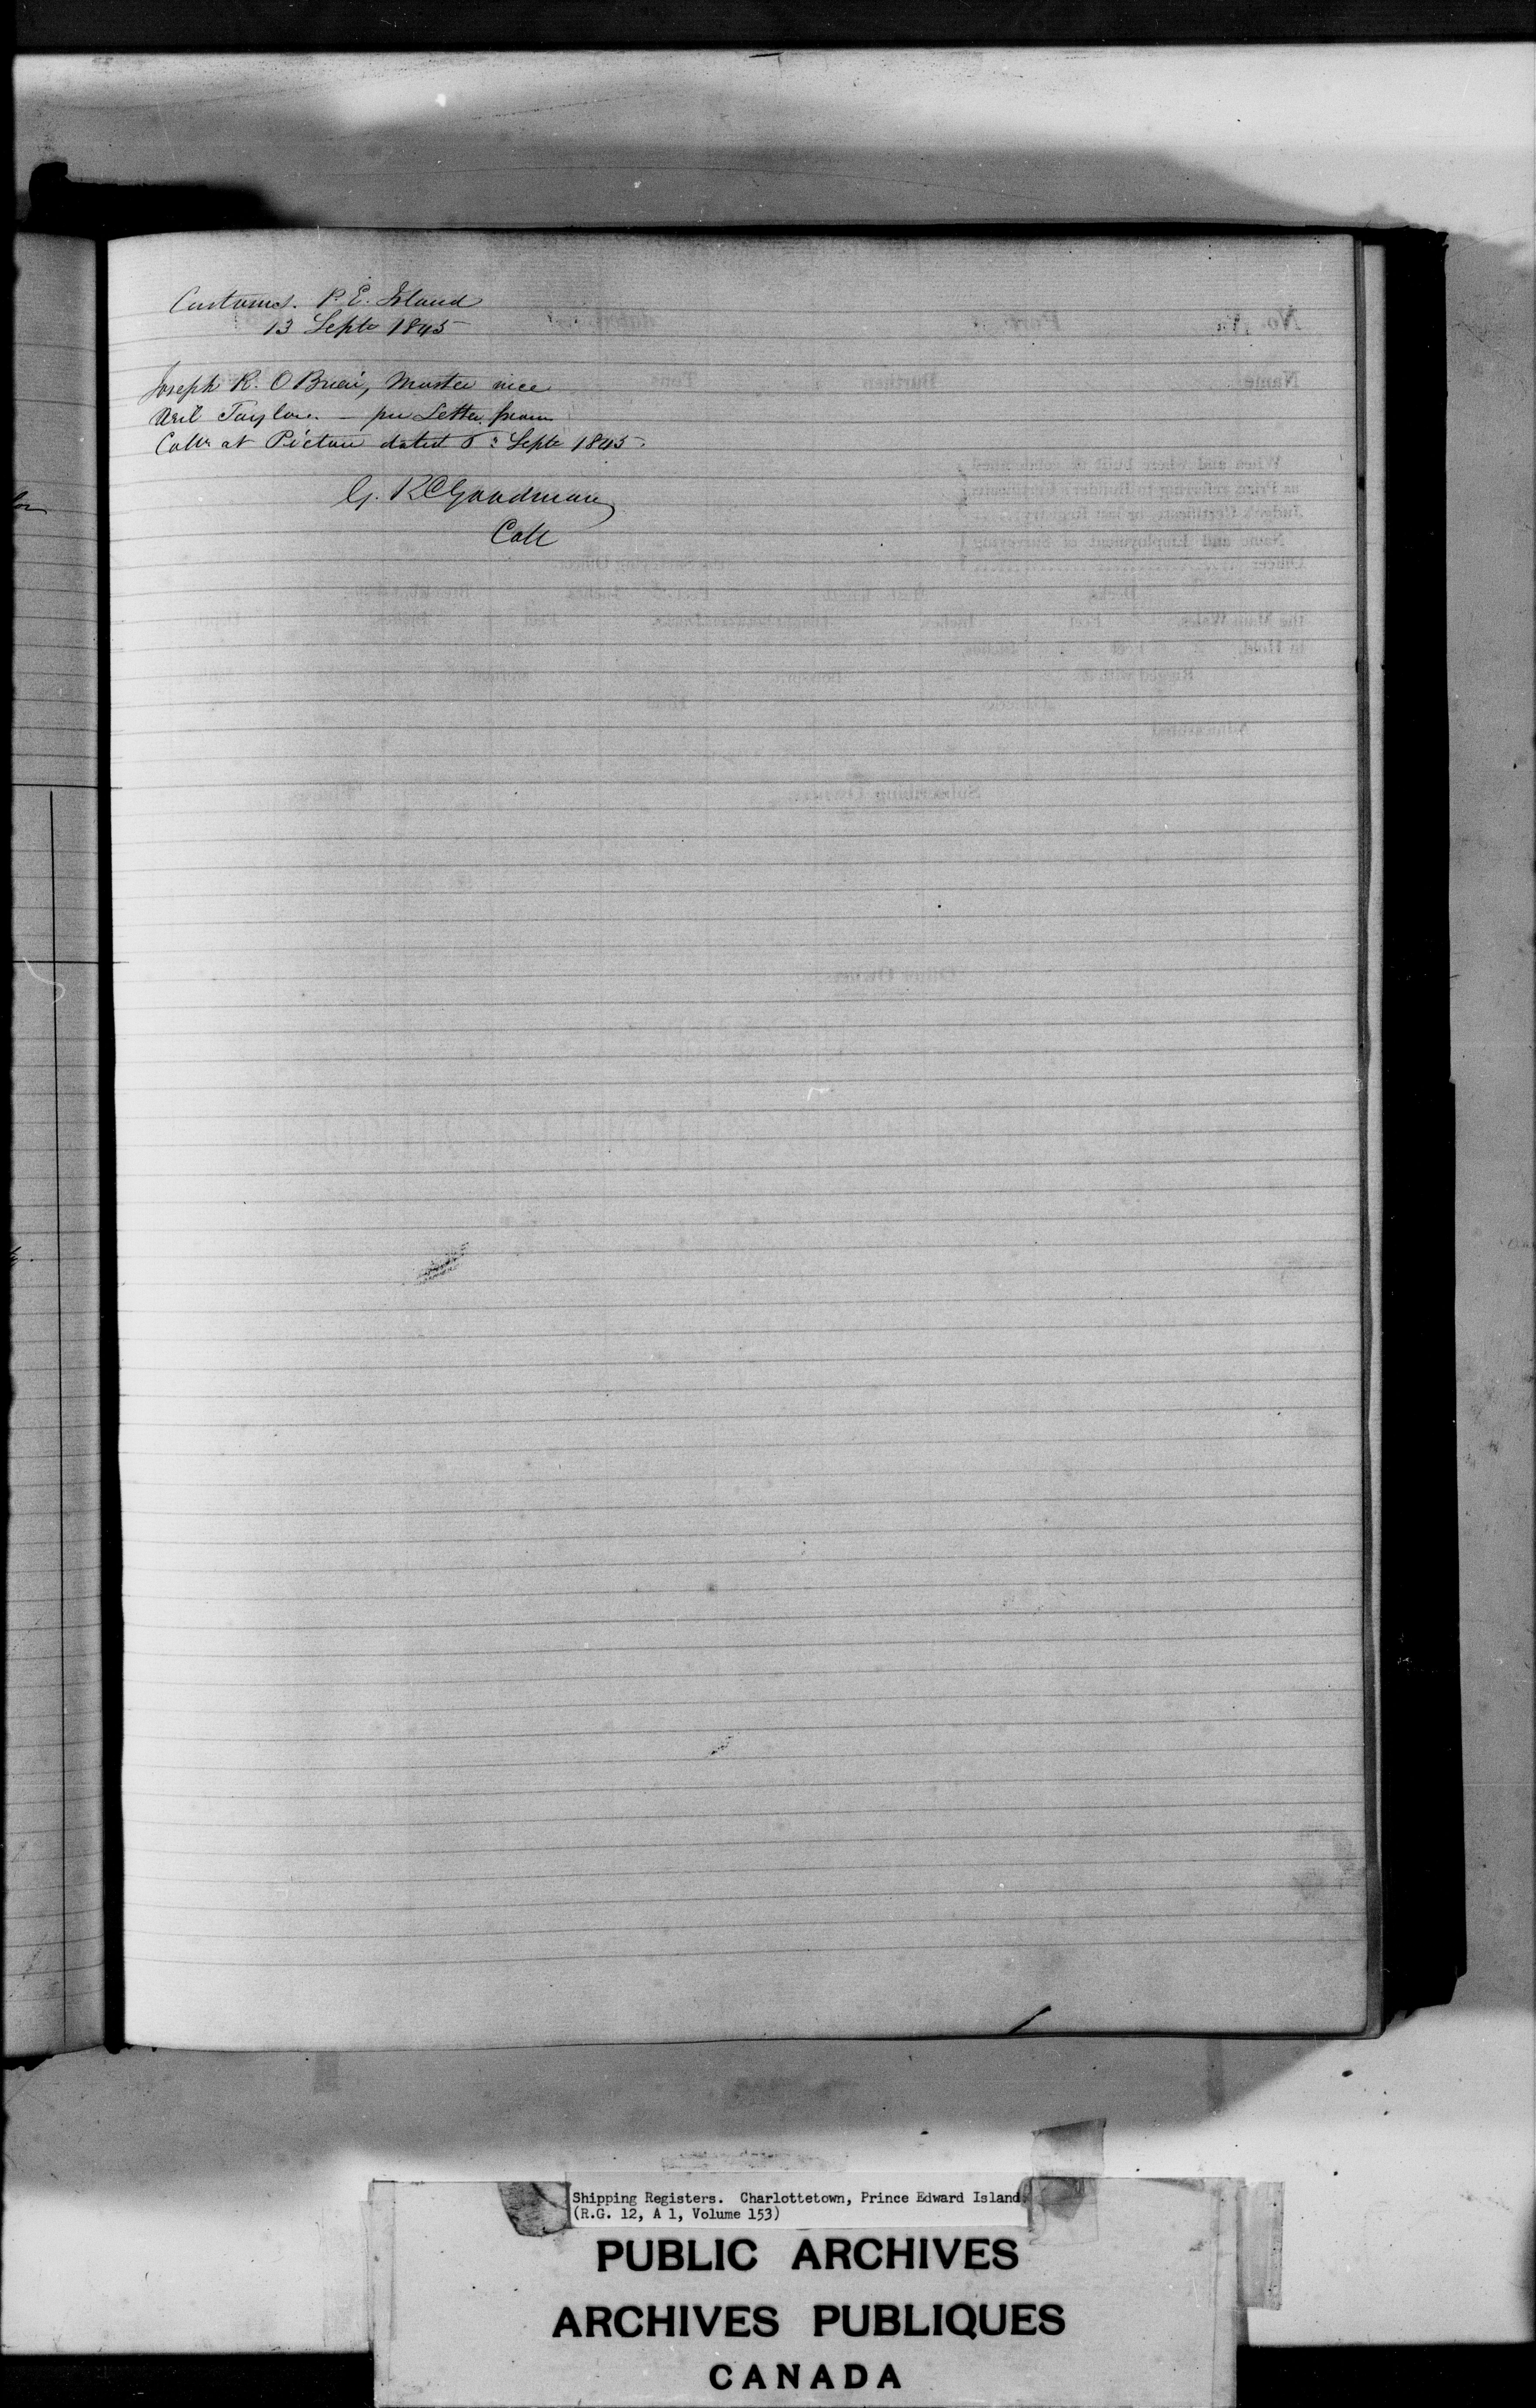 Customs. P. E. Island
13 Septr 1845
Joseph R. O'Brien, Master vice
Neil Taylor. — per Letter from
Collr at Pictou dated Septr 1845.
G. R. Goodman
Coll
Shipping Registers. Charlottetown, Prince Edward Island.
(R.G. 12, A 1, Volume 153)
PUBLIC ARCHIVES
ARCHIVES PUBLIQUES
CANADA